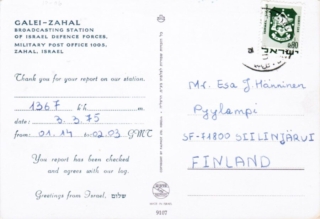 GALEI-ZAHAL
BROADCASTING STATION
OF ISRAEL DEFENCE FORCES,
MILITARY POST OFFICE 1005,
ZAHAL, ISRAEL
Thank you for your report on our station.
1367 kc m
date: 3.3.75
from: 01.14 to 02.03 GMT
You report has been checked
and agrees with our log.
Greetings from Israel, שלום
Mr. Esa J. Hänninen
Pyylampi
SF-71800 SIILINJÄRVI
FINLAND
ישראל
9107